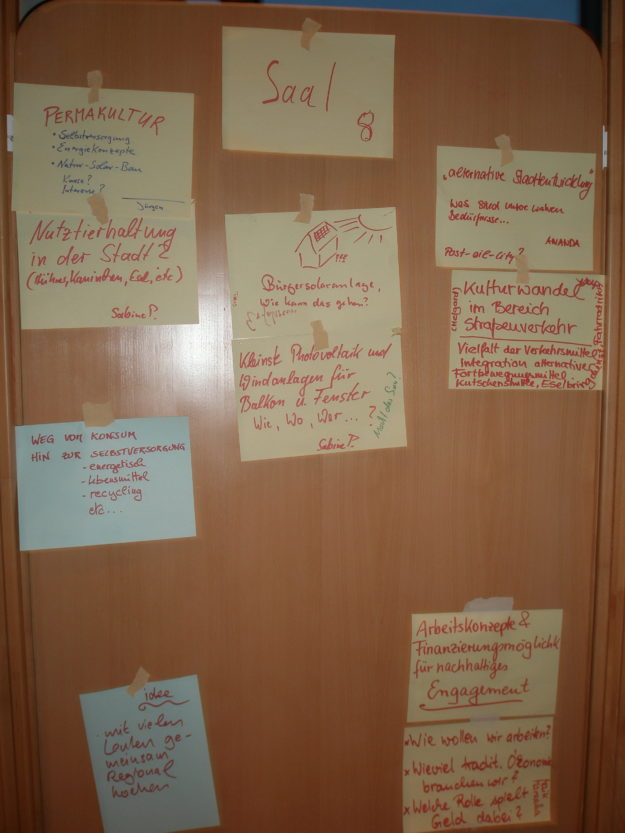 Saal
8
PERMAKULTUR
• Selbstversorgung
• Energiekonzepte
• Natur-Solar-Bau
Kurse?
Interesse?
Jürgen
Nutztierhaltung
in der Stadt?
(Hühner, Kaninchen, Esel, etc)
Sabine P.
Bürgersolaranlage,
wie kann das gehen?
Kleinst Photovoltaik und
Windanlagen für
Balkon u. Fenster
Wie, Wo, Wer... ?
Sabine P.
"alternative Stadtentwicklung"
was sind unsere wahren
Bedürfnisse...
ANANDA
Post-oil-city?
Kulturwandel
im Bereich
Straßenverkehr
Vielfalt der Verkehrsmittel
integration alternativer
Fortbewegungsmittel
WEG VOM KONSUM
HIN ZUR SELBSTVERSORGUNG
- energetisch
- Lebensmittel
- recycling
etc...
idee
mit vielen
Leuten ge-
meinsam
Regional
kochen
Arbeitskonzepte &
Finanzierungsmöglichk
für nachhaltiges
Engagement
x Wie wollen wir arbeiten?
x Wieviel tradit. Ökonomie
brauchen wir?
x Welche Rolle spielt
Geld dabei?